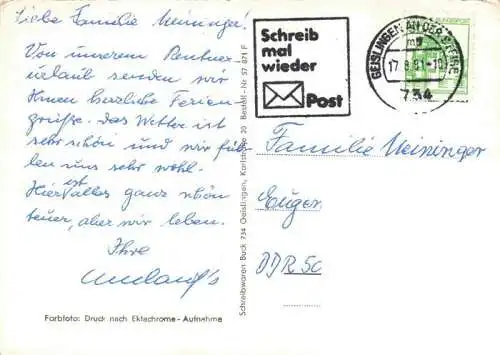 Liebe Familie Meininger!
Von unserem Rentner-
urlaub senden wir
Ihnen herzliche Ferien-
grüße. Das Wetter ist
sehr schön und wir füh-
len uns sehr wohl.
Hier ist alles ganz schön
teuer, aber wir leben.
Ihre
Umlauf's
Farbfoto: Druck nach Ektachrome-Aufnahme
Schreibwaren Buck 734 Geislingen, Karlstraße 20 Bestell-Nr 57 871 F
Schreib
mal
wieder
Post
GEISLINGEN AN DER STEIGE
17.8.81-18
734
Familie Meininger
DDR 50